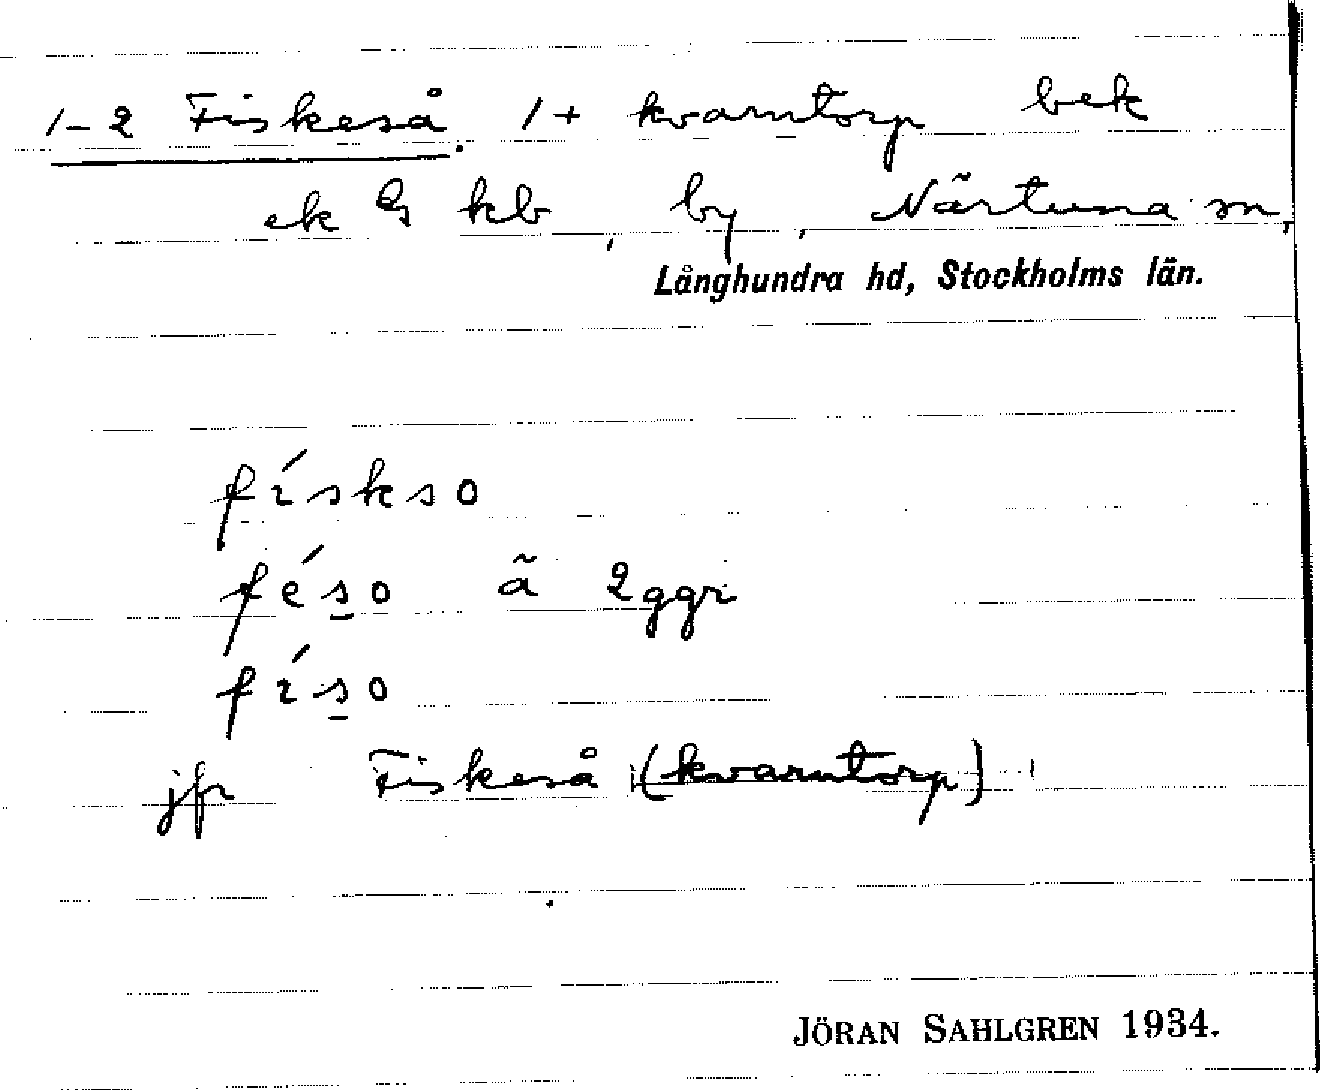 1-2 Fiskeså. 1+ kvarntorp bek
ek G kb, by, Närtuna sn,
Långhundra hd, Stockholms län.
físksο
féso ä 2ggr
físo
jfr Fiskeså (kvarntorp)
JÖRAN SAHLGREN 1934.